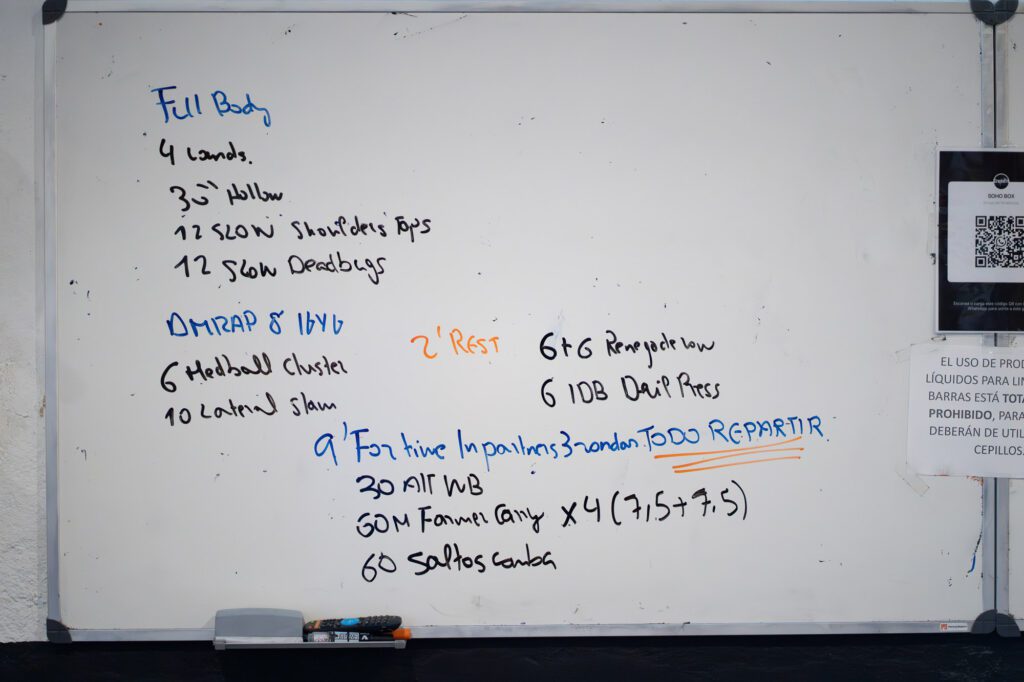 Full Body
4 Rounds.
30" Hollow
12 SLOW Shoulders Taps
12 Slow Deadbugs
AMRAP 8'
6 Medball Cluster
10 Lateral Slam
2' REST
6+6 Renegade row
6 1DB Devil Press
9' For time In partners 3 rondas TODO REPARTIR.
30 Alt WB
60M Farmer Carry x4 (7,5+7,5)
60 Saltos comba
SOHO BOX
EL USO DE PROD
LÍQUIDOS PARA LIM
BARRAS ESTÁ TOTA
PROHIBIDO, PARA
DEBERÁN DE UTIL
CEPILLOS.